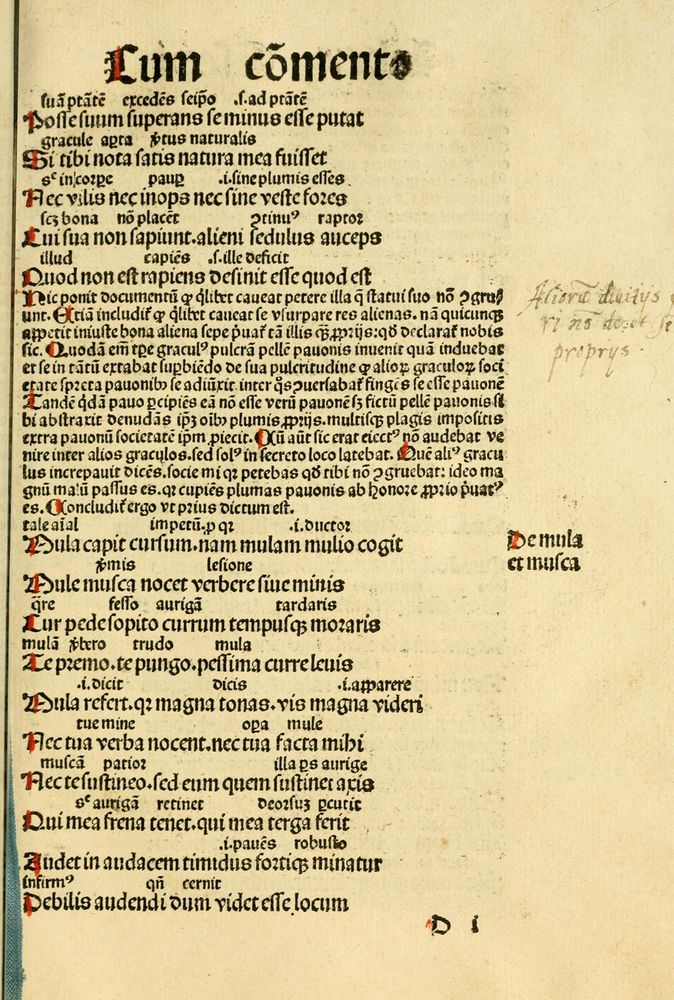 Cum cõmento
suã ptãtẽ excedẽs seip̃o .s. ad ptãtẽ
Posse suum superans se minus esse putat
gracule aꝑta ꝟtus naturalis
Si tibi nota satis natura mea fuisset
sꝫ incorꝑe pauꝑ .i. sine plumis esses
Nec vilis nec inops nec sine veste fores
scꝫ bona nõ placẽt ꝯtinuꝰ raptor
Cui sua non sapiunt. alieni sedulus auceps
illud capiẽs .s. ille deficit
Quod non est rapiens desinit esse quod est
Hic ponit documentũ ꝙ q̃libet caueat petere illa q̃ statui suo nõ ꝯgru
unt. Etiã includit̃ ꝙ q̃libet caueat se vsurpare res alienas. nã quicunqꝫ
appetit iniuste bona aliena sepe p̃uat̃ tã illis qꝫ ꝓprijs: qð declarat̃ nobis
sic. Quodã em̃ tꝑe graculꝰ pulcrã pellẽ pauonis inuenit quã induebat
et se in tãtũ extabat supbiẽdo de sua pulcritudine ꝙ alioꝝ graculoꝝ soci
etate spreta pauonibꝰ se adiũxit inter q̃s ꝯuersabat̃ fingẽs se esse pauonẽ
Tandẽ q̃dã pauo ꝑcipiẽs eã nõ esse verũ pauonẽ sꝫ fictũ pellẽ pauonis si
bi abstraxit denudãs ip̃ꝫ oĩbꝰ plumis ꝓprijs. multisqꝫ plagis impositis
extra pauonũ societatẽ ip̃m ꝓiecit. Cũ aũt sic erat eiectꝰ nõ audebat ve
nire inter alios graculos. sed solꝰ in secreto loco latebat. Quẽ aliꝰ gracu
lus increpauit dicẽs. socie mi qꝛ petebas qð tibi nõ ꝯgruebat: ideo ma
gnũ malũ passus es. qꝛ cupiẽs plumas pauonis ab honore ꝓprio p̃uatꝰ
es. Concludit̃ ergo vt prius dictum est.
tale aĩal impetũ. ꝓ qꝛ .i. ductor
Mula capit cursum. nam mulam mulio cogit
De mula
et musca
ꝟmis lesione
Mule musca nocet verbere siue minis
q̃re fesso aurigã tardaris
Cur pede sopito currum tempusqꝫ moraris
mulã ꝟbero trudo mula
Te premo. te pungo. pessima curre leuis
.i. dicit dicis .i. apparere
Mula refert. qꝛ magna tonas. vis magna videri
tue mine oꝑa mule
Nec tua verba nocent. nec tua facta mihi
muscã patior illa ꝑs aurige
Nec te sustineo. sed eum quem sustinet axis
sꝫ aurigã retinet deorsuꝫ ꝑcutit
Qui mea frena tenet. qui mea terga ferit
.i. pauẽs robusto
Audet in audacem timidus fortiqꝫ minatur
infirmꝰ qñ cernit
Debilis audendi dum videt esse locum
D i